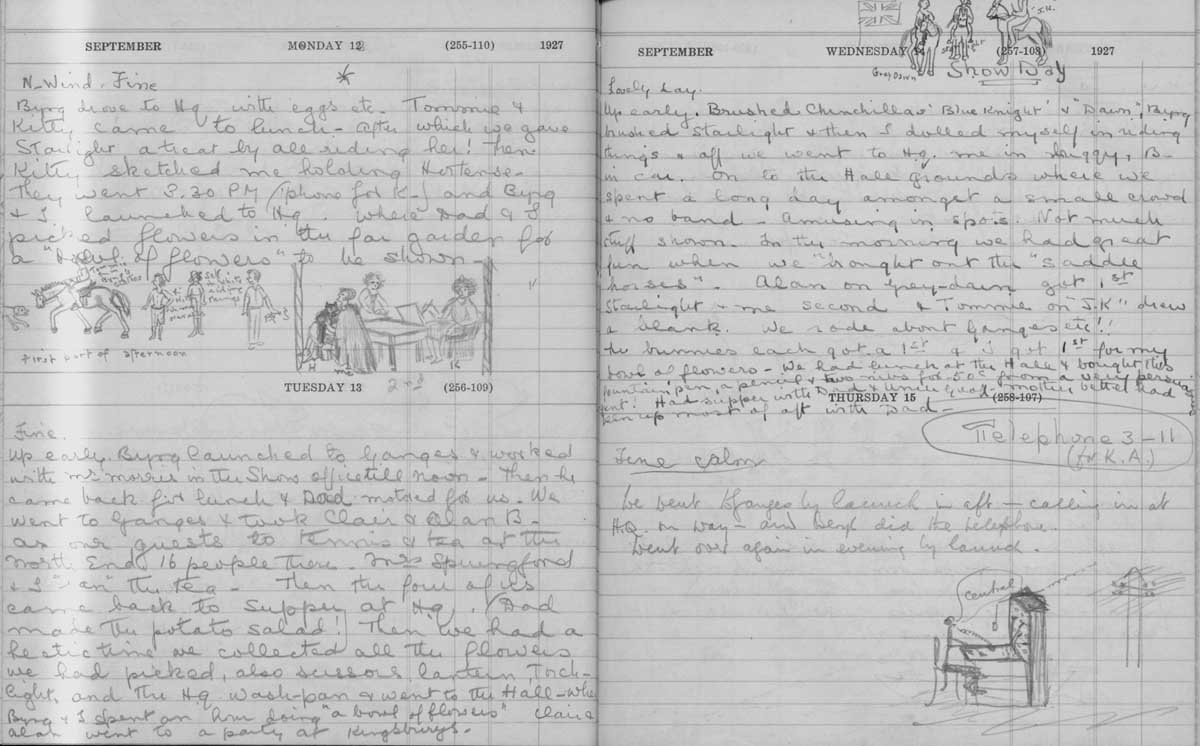 SEPTEMBER MONDAY 12 (255-110) 1927
N-Wind. Fine
Byrq drove to Hq with eggs etc. Tommie &
Kitty came to lunch - after which we gave
Starlight a treat by all riding her! Then
Kitty sketched me holding Hortense -
They went 3.30 PM (phone for K-) and Byrq
& I launched to Hq. where Dad & I
picked flowers in the far garden for
a "bowl of flowers" to be shown -
First part of afternoon
H me K
2nd
TUESDAY 13 (256-109)
Fine.
Up early. Byrq launched to Ganges & worked
with Mr Morris in the Show office till noon - Then he
came back for lunch & Dad motored for us. We
went to Ganges & took Clair & Alan B-
as our guests to tennis & tea at the
North End. 16 people there. Mrs Springford
& I "ran" the tea - Then the four of us
came back to supper at Hq. (Dad
made the potato salad! Then we had a
hectic time we collected all the flowers
we had picked, also scissors, lantern, Torch-
light, and the Hq wash-pan & went to the Hall - where
Byrq & I spent an hour doing "a bowl of flowers" Claire
Alan went to a party at Kingsburys.
J.K.
SEPTEMBER WEDNESDAY 14 (257-108) 1927
Grey Dawn Show Day
Lovely day.
Up early. Brushed Chinchillas 'Blue Knight' & "Dawn", Byrq
brushed Starlight & then I dolled myself in riding
things & off we went to Hq. me in buggy, B-
in car. On to the Hall grounds where we
spent a long day amongst a small crowd
& no band - Amusing in spots. Not much
stuff shown. In the morning we had great
fun when we "brought out the "saddle
horses". Alan on Grey-dawn got 1st
Starlight & me second & Tommie on "J.K" drew
a blank. We rode about Ganges etc!!
The bunnies each got a 1st & I got 1st for my
bowl of flowers - We had lunch at the Hall & bought this
fountain pen, a pencil & two nibs for 50c from a very persua
gent! Had supper with Dad & Uncle Quad - mother better had
been up most of aft with Dad -
THURSDAY 15 (258-107)
Telephone 3-11
(for K.A.)
Fine calm
We went to Ganges by launch in aft - calling in at
H.Q. on way - and did the telephone.
Went over again in evening by launch.
Central